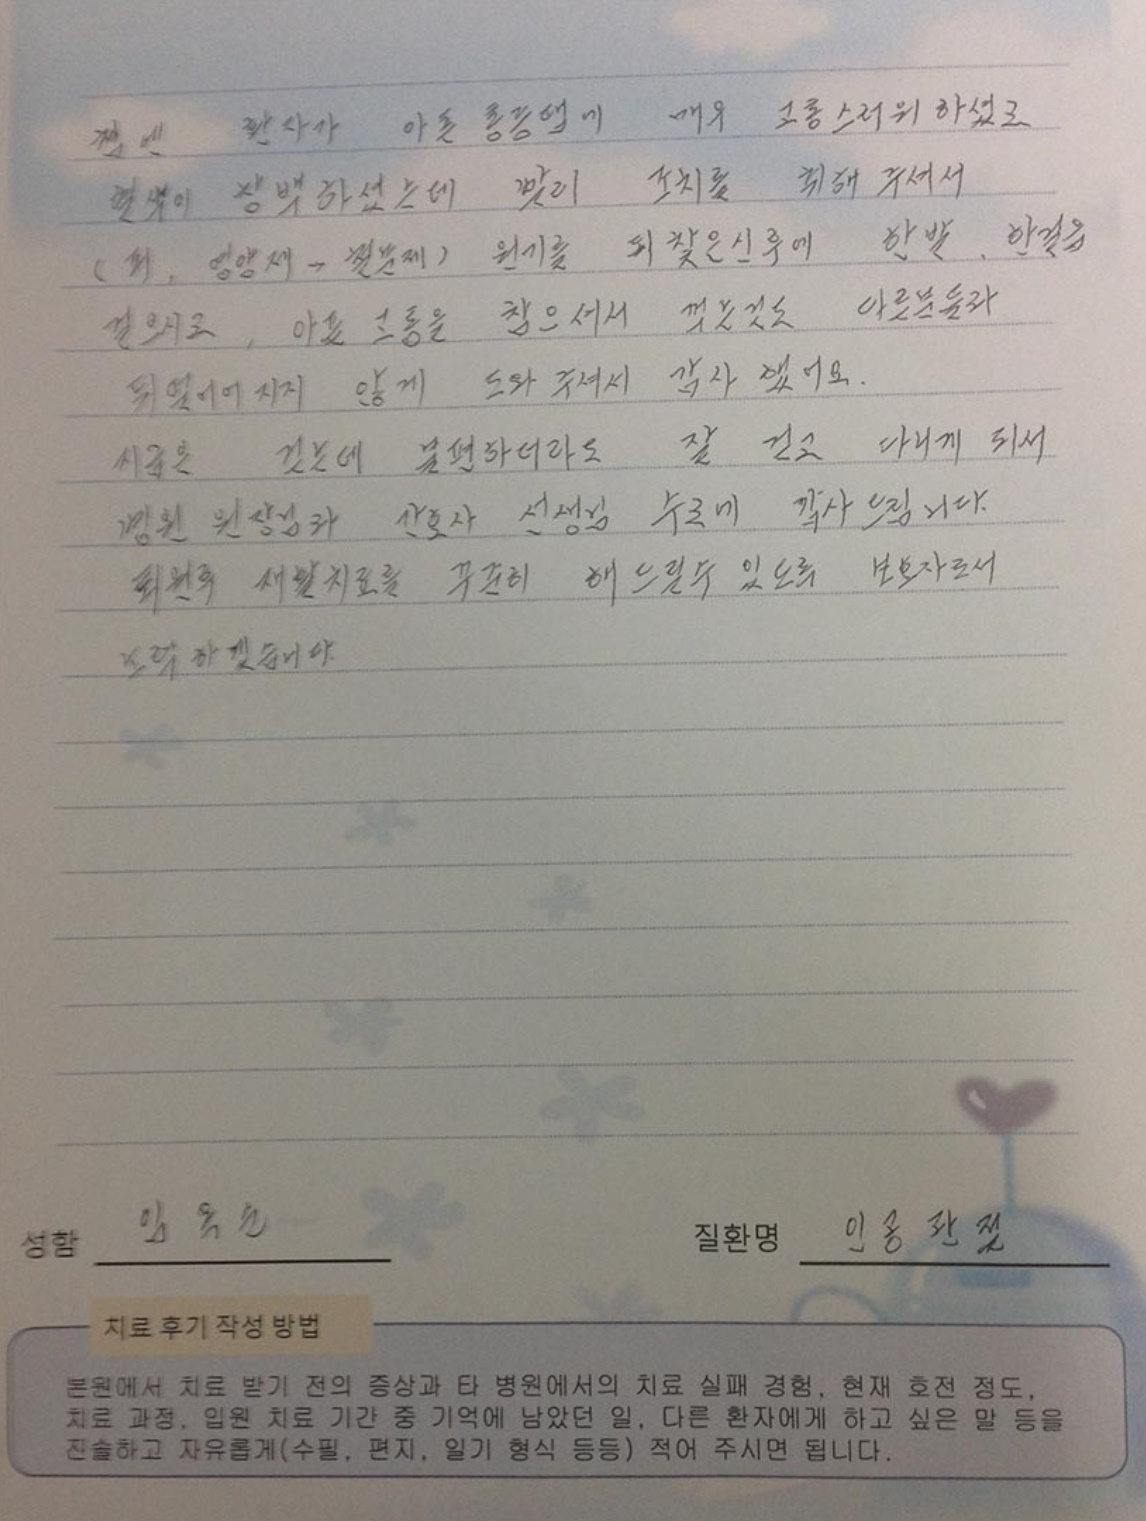 첨엔 환자가 아픈 통증땜에 매우 고통스러워 하셨고
혈색이 창백하셨는데 빨리 조치를 취해 주셔서
(피, 영양제, 철분제) 원기를 되찾은신후에 한발, 한걸음
걸으시고, 아픈 고통을 참으셔서 걷는것도 다른분들과
뒤떨어어 지지 않게 도와 주셔서 감사 했어요.
지금은 걷는데 불편하더라도 잘 걷고 다니게 되서
병원 원장님과 간호사 선생님 두루에 감사드립니다.
퇴원후 재활치료를 꾸준히 해 드릴수 있도록 보호자로서
노력 하겠습니다.
성함 임옥순 질환명 인공관절
치료 후기 작성 방법
본원에서 치료 받기 전의 증상과 타 병원에서의 치료 실패 경험, 현재 호전 정도,
치료 과정, 입원 치료 기간 중 기억에 남았던 일, 다른 환자에게 하고 싶은 말 등을
진솔하고 자유롭게(수필, 편지, 일기 형식 등등) 적어 주시면 됩니다.